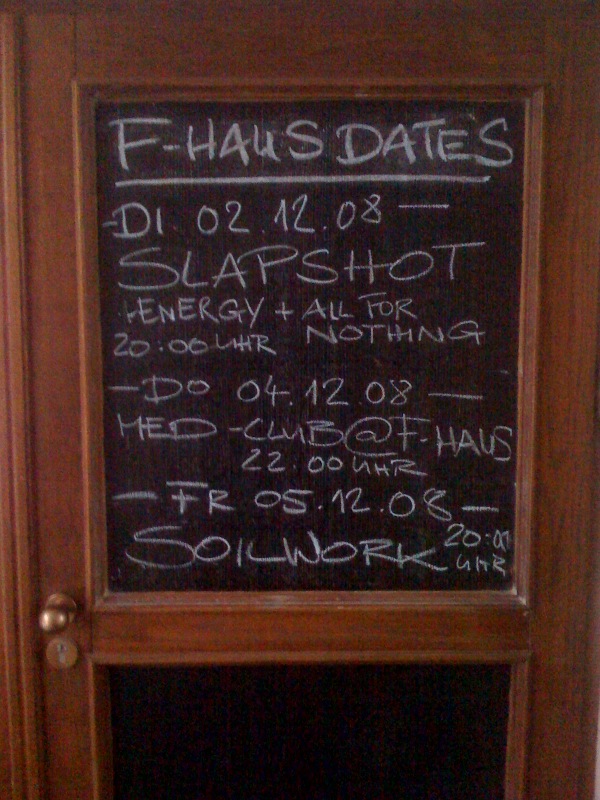 F-HAUS DATES
-DI 02.12.08 —
SLAPSHOT
+ENERGY + ALL FOR
NOTHING
20:00 UHR
—DO 04.12.08 —
MED-CLUB@F-HAUS
22.00 UHR
— FR 05.12.08 —
SOILWORK 20:00
UHR